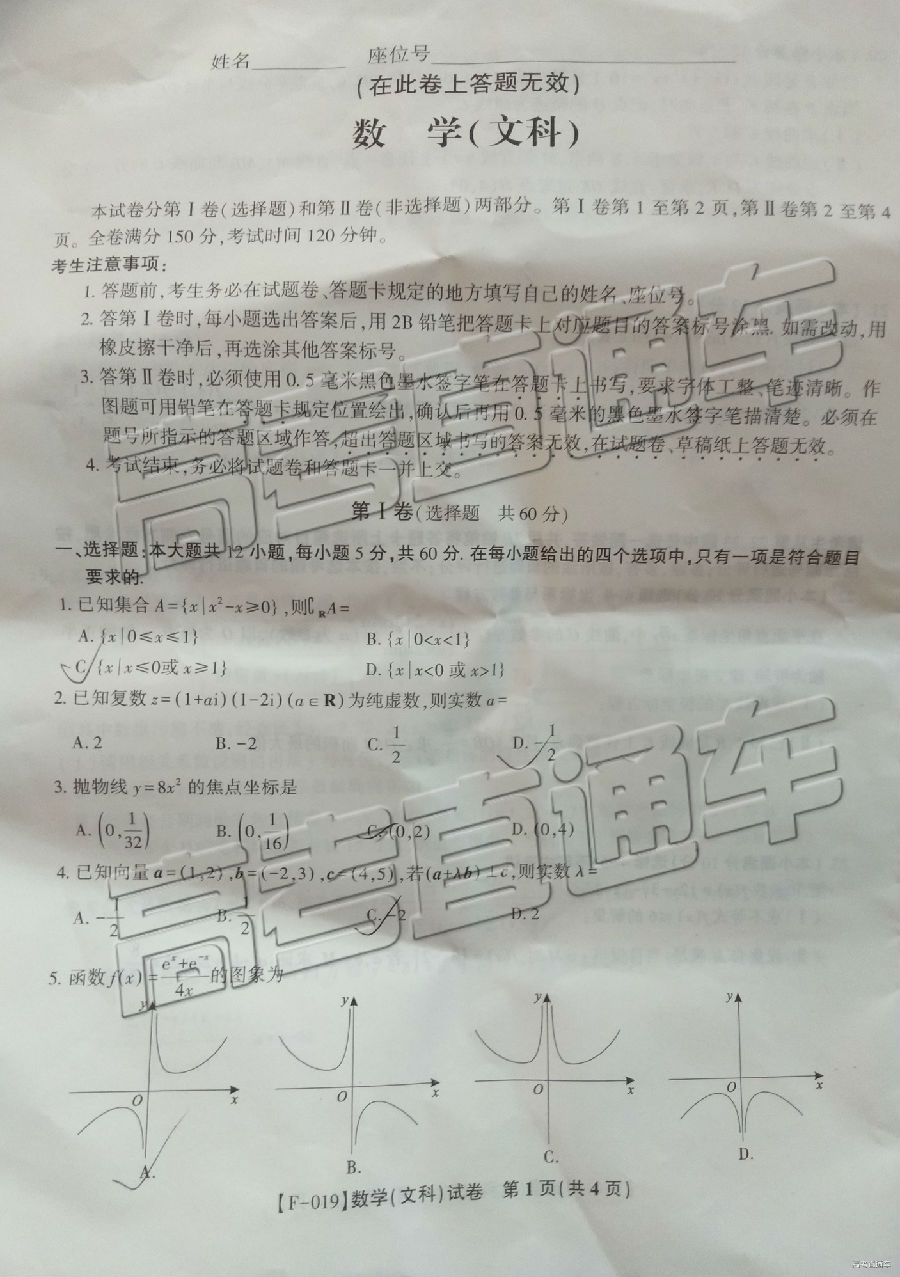 姓名________ 座位号________________
(在此卷上答题无效)
数 学(文科)
本试卷分第Ⅰ卷(选择题)和第Ⅱ卷(非选择题)两部分。第Ⅰ卷第1至第2页,第Ⅱ卷第2至第4
页。全卷满分150分,考试时间120分钟。
考生注意事项:
1. 答题前,考生务必在试题卷、答题卡规定的地方填写自己的姓名、座位号。
2. 答第Ⅰ卷时,每小题选出答案后,用2B铅笔把答题卡上对应题目的答案标号涂黑. 如需改动,用
橡皮擦干净后,再选涂其他答案标号。
3. 答第Ⅱ卷时,必须使用0.5毫米黑色墨水签字笔在答题卡上书写,要求字体工整、笔迹清晰。作
图题可用铅笔在答题卡规定位置绘出,确认后再用0.5毫米的黑色墨水签字笔描清楚。必须在
题号所指示的答题区域作答,超出答题区域书写的答案无效,在试题卷、草稿纸上答题无效。
4. 考试结束,务必将试题卷和答题卡一并上交。
第Ⅰ卷(选择题 共60分)
一、选择题:本大题共12小题,每小题5分,共60分. 在每小题给出的四个选项中,只有一项是符合题目
要求的.
1. 已知集合A={x|x²-x≥0},则∁RA=
A. {x|0≤x≤1} B. {x|0<x<1}
C. {x|x≤0或x≥1} D. {x|x<0或x>1}
2. 已知复数z=(1+ai)(1-2i)(a∈R)为纯虚数,则实数a=
A. 2 B. -2 C. 1/2 D. -1/2
3. 抛物线y=8x²的焦点坐标是
A. (0,1/32) B. (0,1/16) C. (0,2) D. (0,4)
4. 已知向量a=(1,2),b=(-2,3),c=(4,5),若(a+λb)⊥c,则实数λ=
A. -1/2 B. 1/2 C. -2 D. 2
5. 函数f(x)=(eˣ+e⁻ˣ)/4x的图象为
y y y y
O x O x O x O x
A. B. C. D.
【F-019】数学(文科)试卷 第1页(共4页)
高考直通车
高考直通车
高考直通车